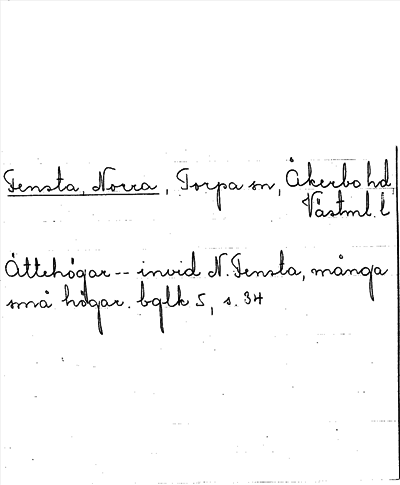 Tensta, Norra, Torpa sn, Åkerbo hd,
Västml. l
Ättehögar -- invid N. Tensta, många
små högar. bglk 5, s. 34